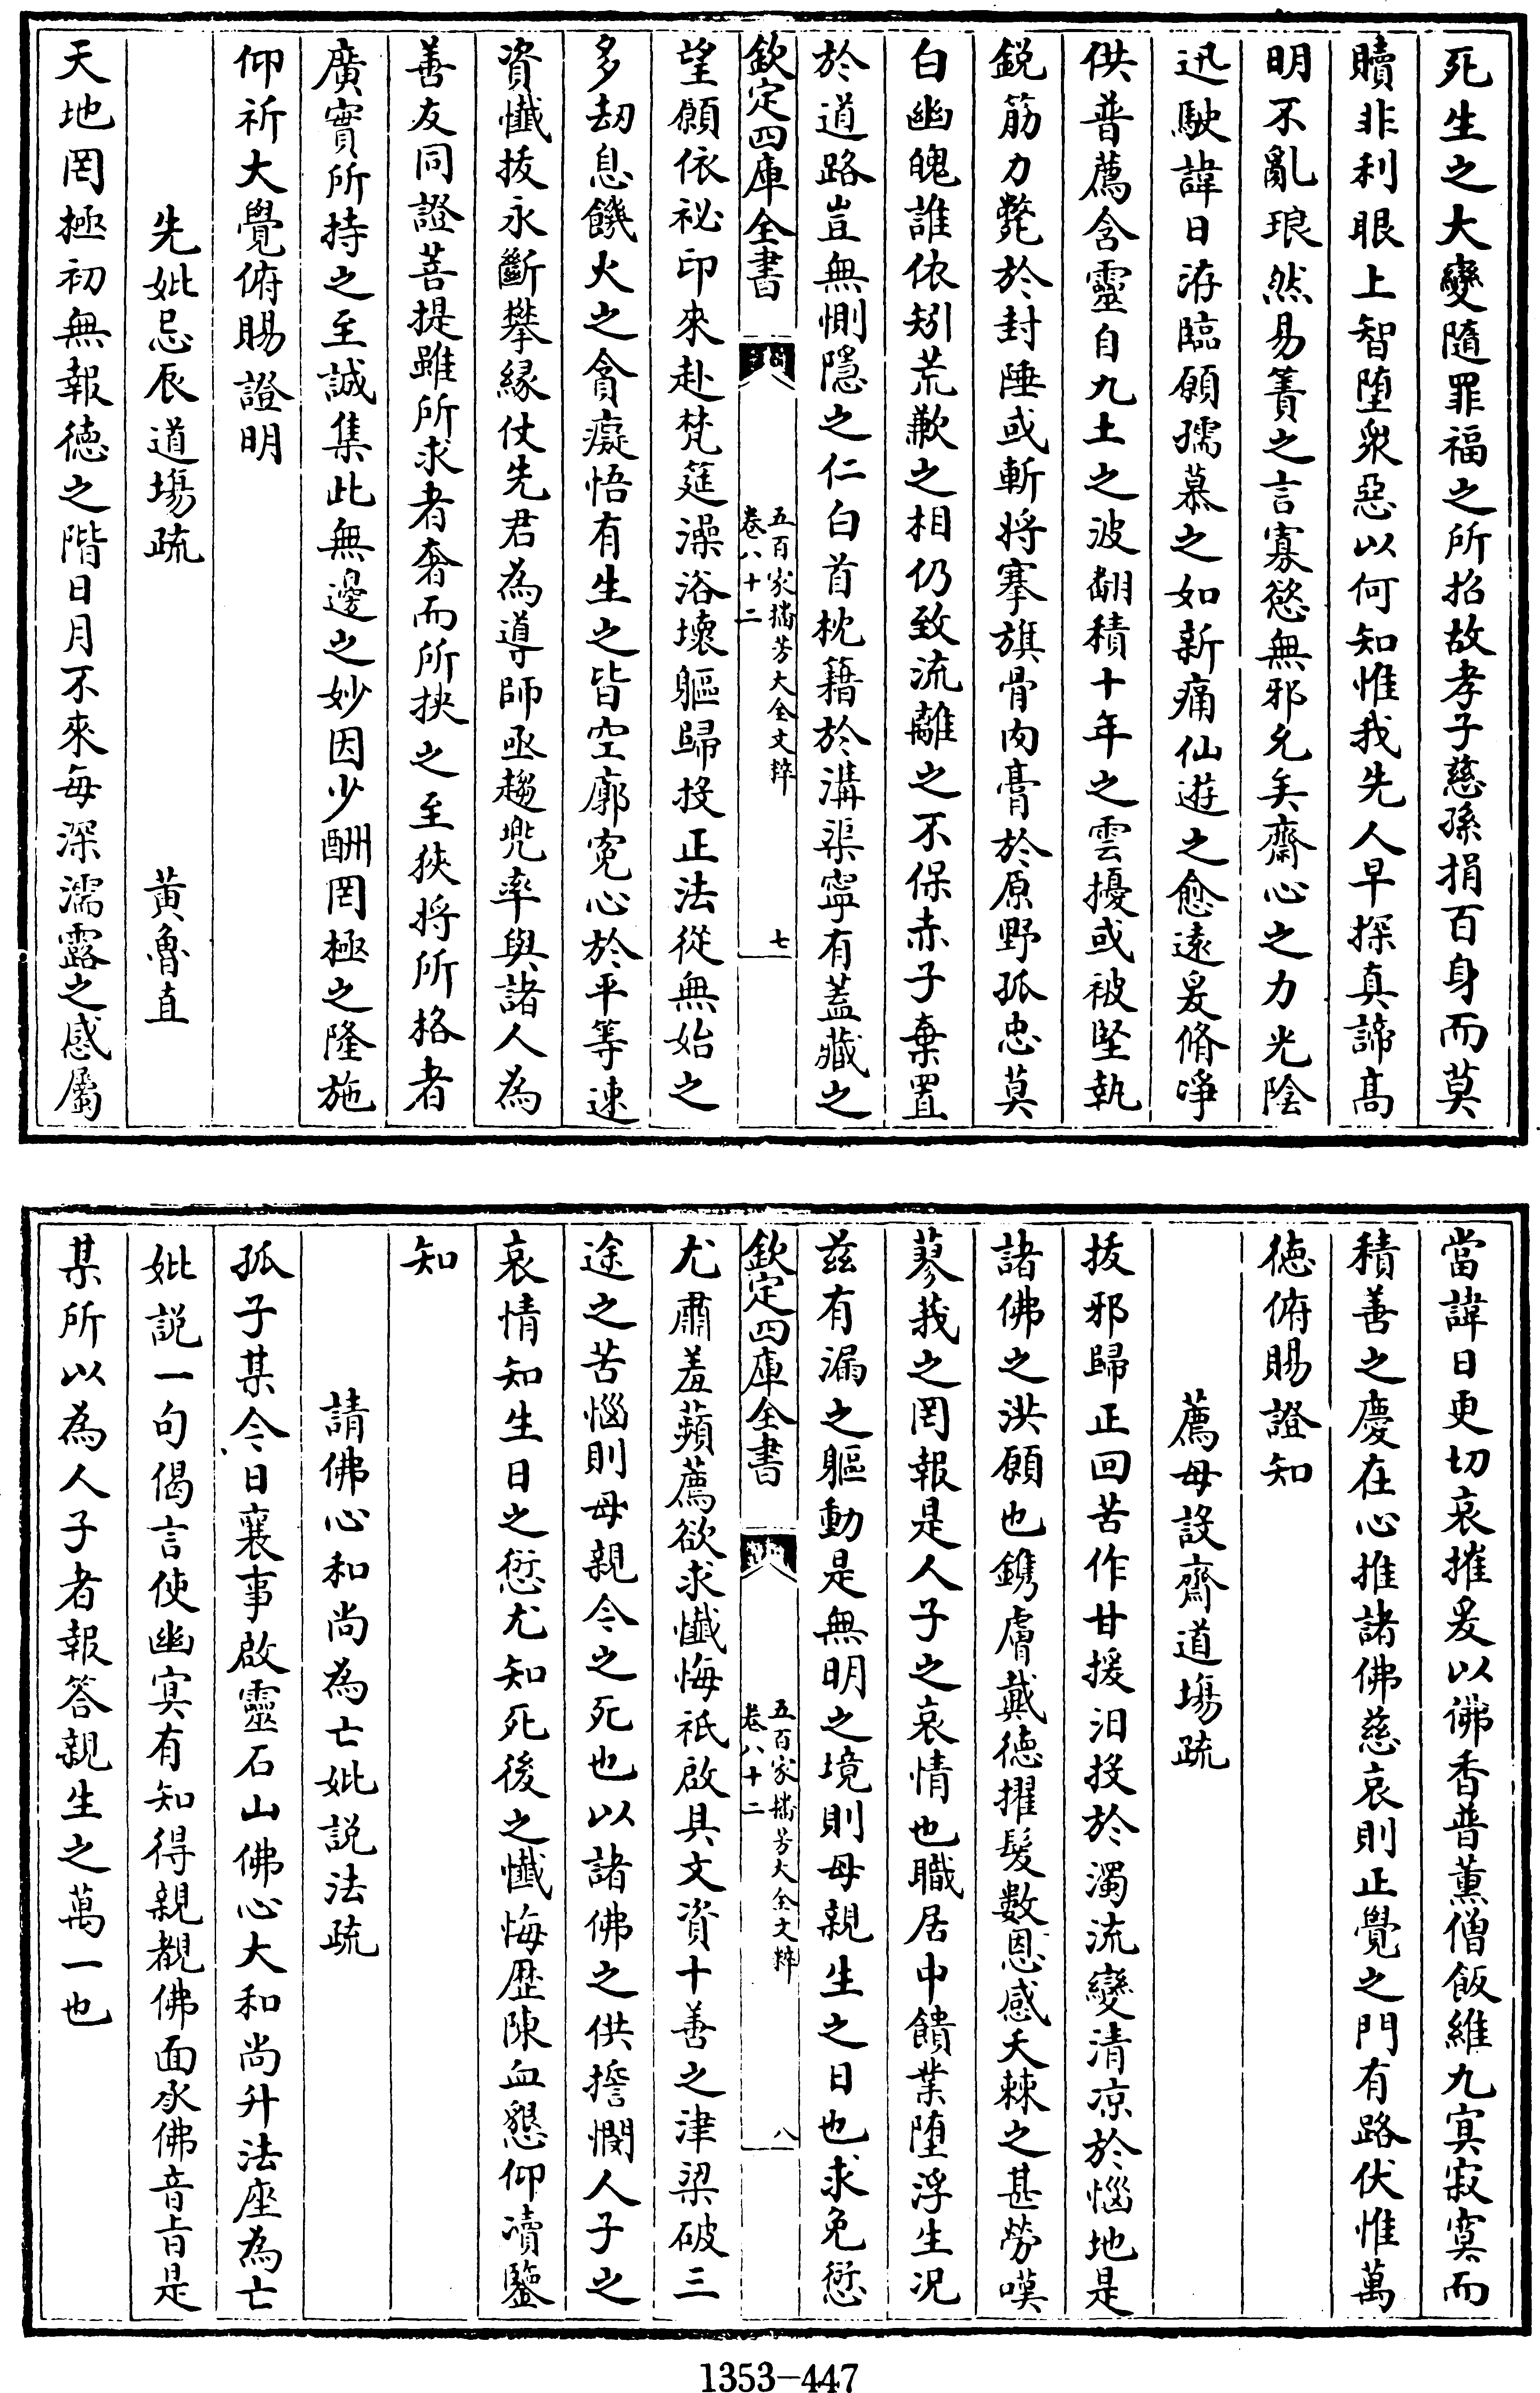 死生之大變隨罪福之所招故孝子慈孫捐百身而莫
贖非利眼上智墮衆惡以何知惟我先人早探真諦髙
明不亂琅然易簀之言寡慾無邪允矣齋心之力光陰
迅駛諱日洊臨願孺慕之如新痛仙遊之愈遠爰脩凈
供普薦含靈自九土之波翻積十年之雲擾或被堅執
鋭筋力斃於封陲或斬將搴旗骨肉膏於原野孤忠莫
白幽魄誰依矧荒歉之相仍致流離之不保赤子棄置
於道路豈無惻隱之仁白首枕籍於溝渠寧有蓋藏之
欽定四庫全書
五百家播芳大全文粹
卷八十二
七
望願依祕印來赴梵筵澡浴壞軀歸投正法從無始之
多刧息饑火之貪癡悟有生之皆空廓寃心於平等速
資懺拔永斷攀縁仗先君為導師亟趨兜率與諸人為
善友同證菩提雖所求者奢而所挾之至狹將所格者
廣實所持之至誠集此無邊之妙因少酬罔極之隆施
仰祈大覺俯賜證明
先妣忌辰道場疏
黄魯直
天地罔極初無報徳之階日月不來每深濡露之感屬
當諱日更切哀摧爰以佛香普薰僧飯維九冥寂寞而
積善之慶在心推諸佛慈哀則正覺之門有路伏惟萬
徳俯賜證知
薦母設齋道場疏
拔邪歸正回苦作甘援汨投於濁流變清凉於惱地是
諸佛之洪願也鐫膚戴徳擢髮數恩感夭棘之甚勞嘆
蓼莪之罔報是人子之哀情也職居中饋業墮浮生况
兹有漏之軀動是無明之境則母親生之日也求免愆
欽定四庫全書
五百家播芳大全文粹
卷八十二
八
尤肅羞蘋薦欲求懺悔祇啟具文資十善之津梁破三
途之苦惱則母親今之死也以諸佛之供擔憫人子之
哀情知生日之愆尤知死後之懺悔歴陳血懇仰凟鑒
知
請佛心和尚為亡妣説法疏
孤子某今日襄事啟靈石山佛心大和尚升法座為亡
妣説一句偈言使幽冥有知得親覩佛面承佛音旨是
某所以為人子者報答親生之萬一也
1353-447